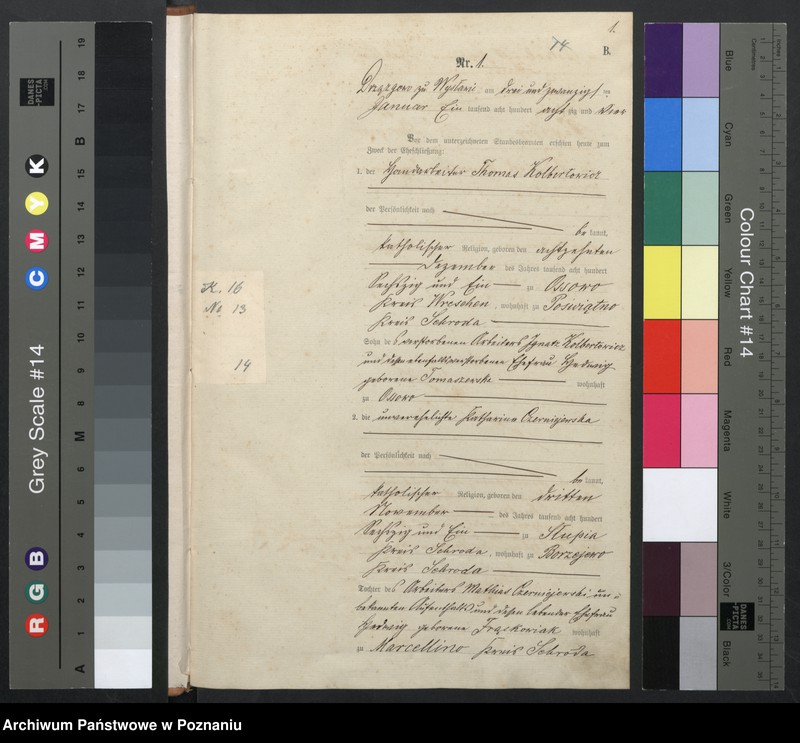 1.
74
B.
Nr. 1.
am drei und zwanzigsten
Januar Ein tausend acht hundert achtzig und vier
Vor dem unterzeichneten Standesbeamten erschien heute zum
Zweck der Eheschließung:
1. der Handarbeiter Thomas Kolbertowicz
der Persönlichkeit nach
be kannt,
katholischer Religion, geboren den achtzehnten
Dezember des Jahres tausend acht hundert
Sechszig und Ein zu Ossowo
Kreis Wreschen, wohnhaft zu
Kreis Schroda
Sohn des verstorbenen Arbeiters Ignatz Kolbertowicz
und ebenfalls verstorbenen Ehefrau Hedwig
geborene Tomaszewska wohnhaft
zu Ossowo
2. die unverehelichte Katharina Czerniejewska
der Persönlichkeit nach
be kannt,
katholischer Religion, geboren den dritten
November des Jahres tausend acht hundert
Sechszig und Ein zu Slupia
Kreis Schroda, wohnhaft zu Borzejewo
Kreis Schroda
Tochter des Arbeiters Mathias Czerniejewski un-
bekannten Aufenthalts und dessen lebender Ehefrau
Hedwig geborene Frąckowiak wohnhaft
zu Marcellino Kreis Schroda
K. 16
No 13
14
Grey Scale #14
R G B
C M Y K
A 1 2 3 4 5 6 M 8 9 10 11 12 13 14 15 B 17 18 19
DANES
-PICTA
.COM
Colour Chart #14
Blue
Cyan
Green
Yellow
Red
Magenta
White
3/Color
Black
Inches
Centimetres
DANES
-PICTA
.COM
Archiwum Państwowe w Poznaniu